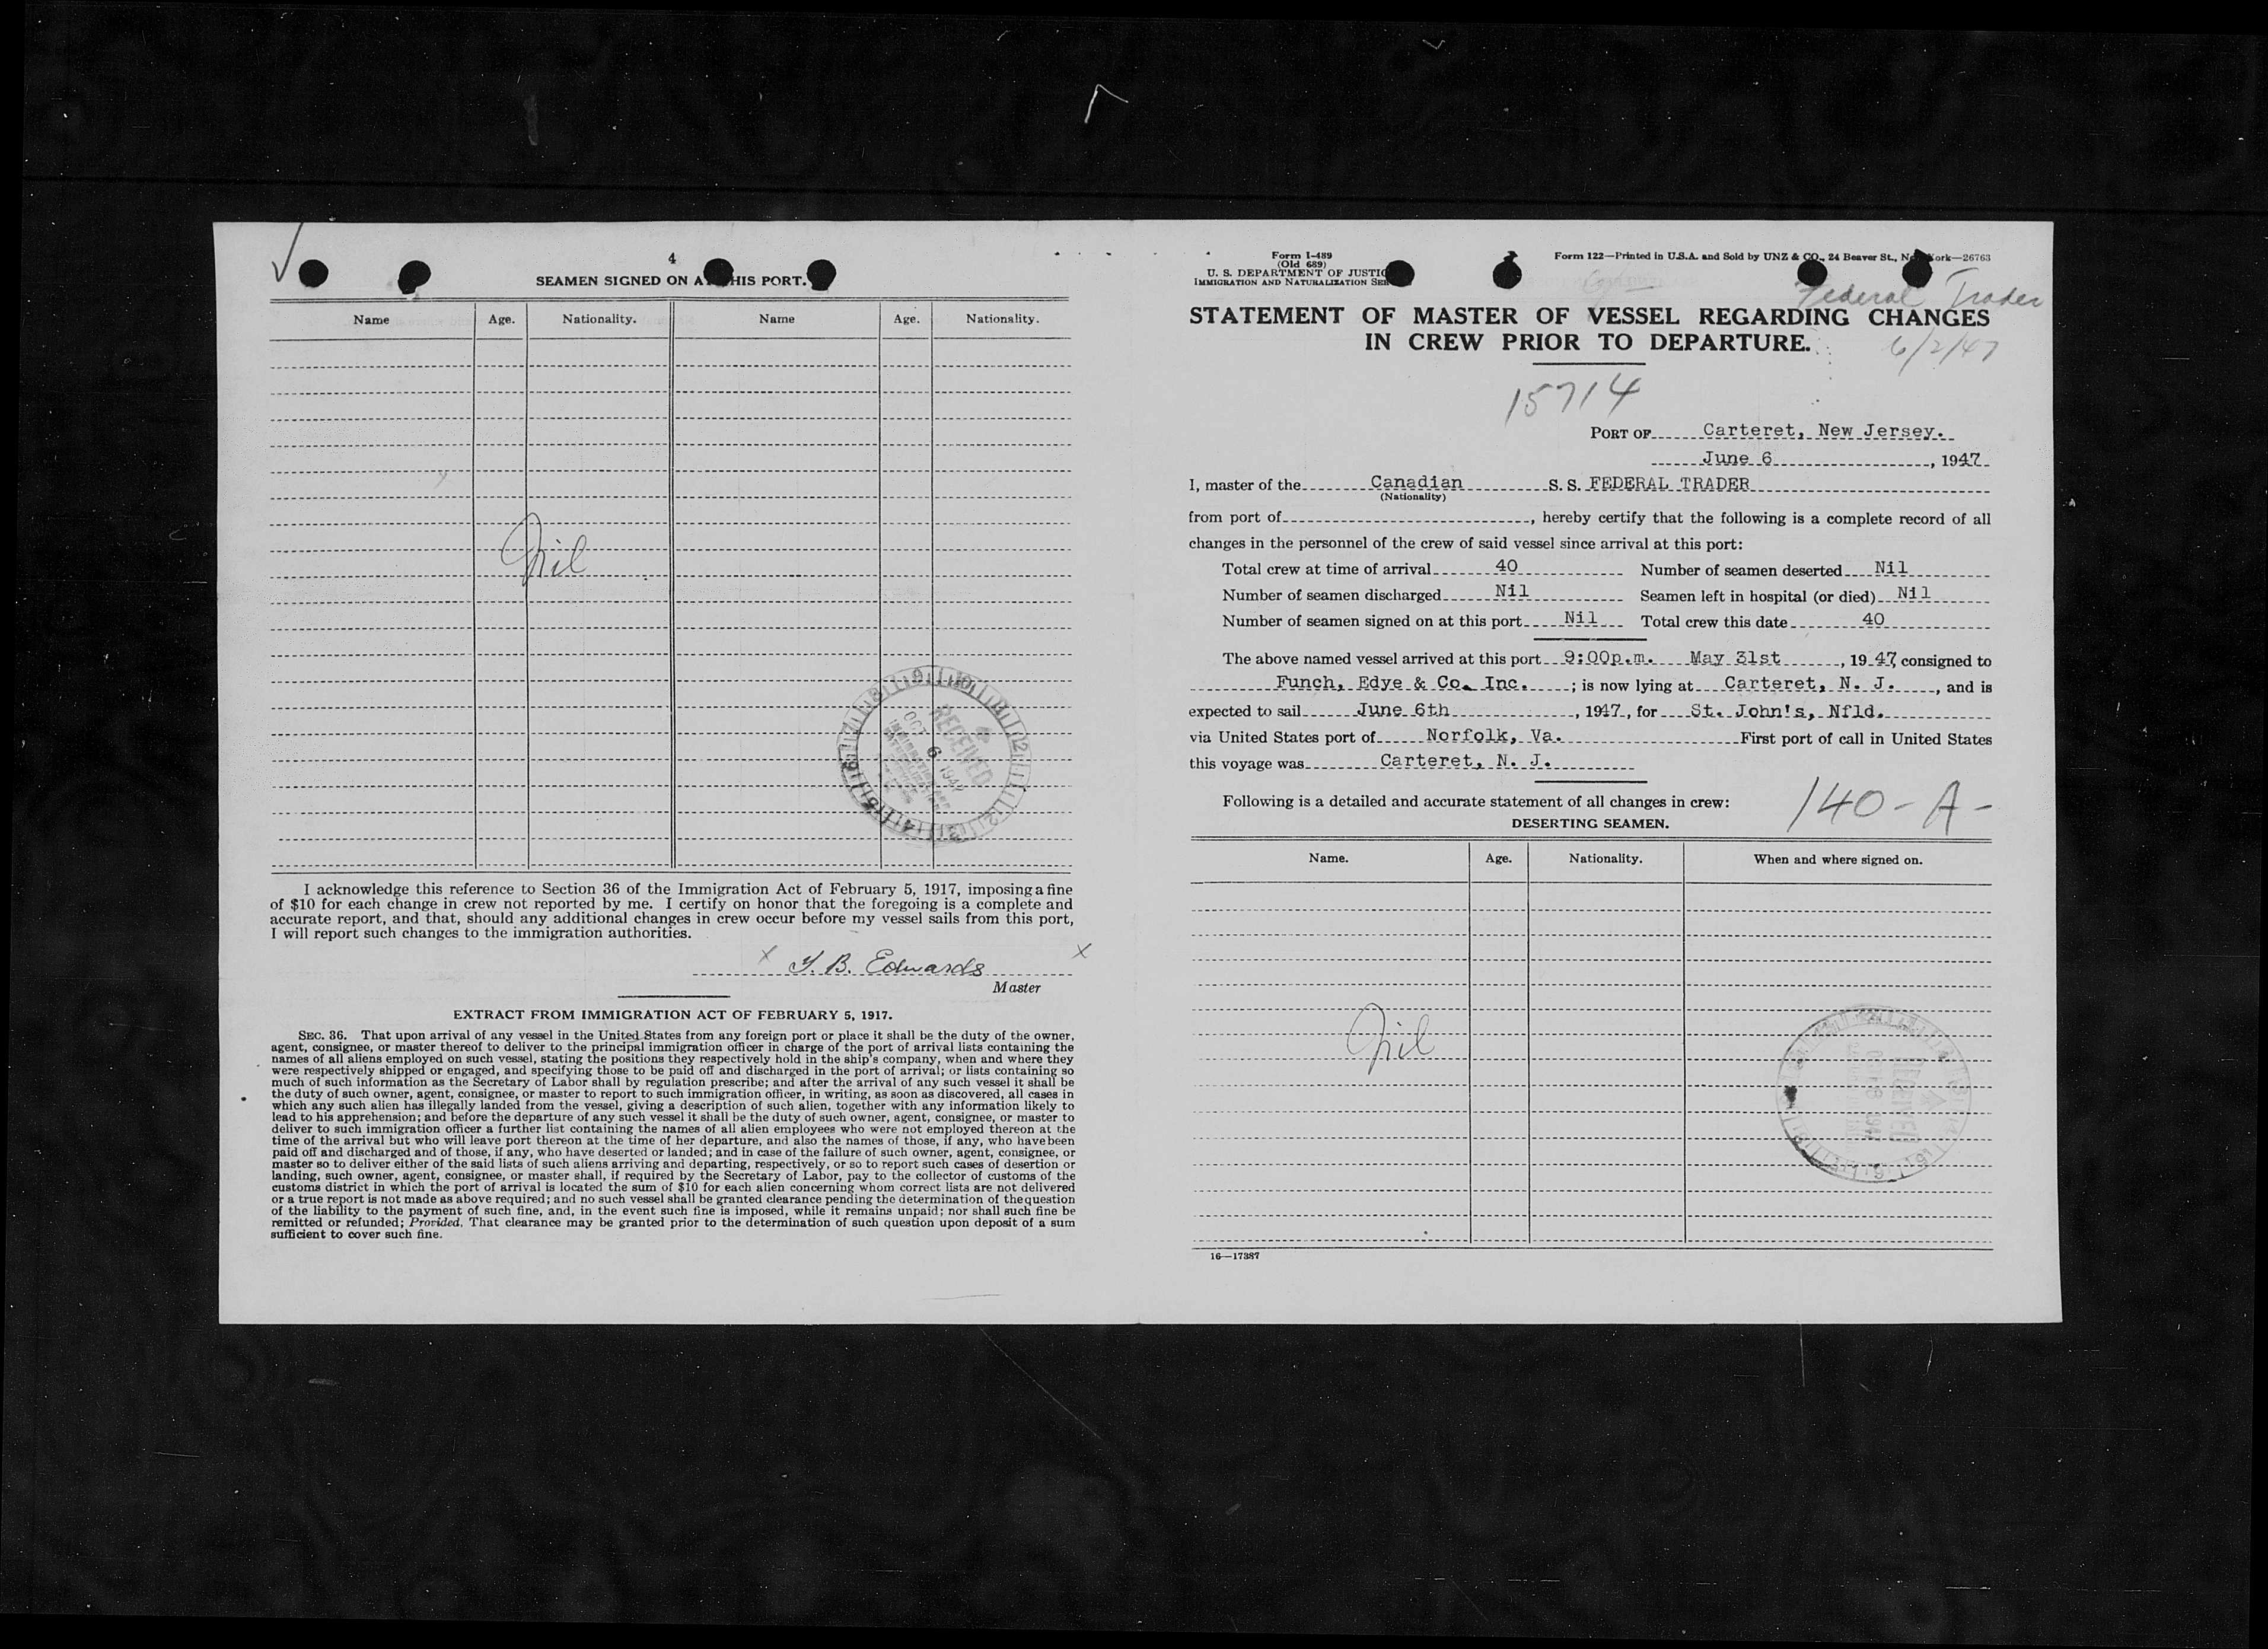 4
SEAMEN SIGNED ON AT THIS PORT.
Name Age. Nationality. Name Age. Nationality.
Nil
RECEIVED
OCT 6 1947
I acknowledge this reference to Section 36 of the Immigration Act of February 5, 1917, imposing a fine
of $10 for each change in crew not reported by me. I certify on honor that the foregoing is a complete and
accurate report, and that, should any additional changes in crew occur before my vessel sails from this port,
I will report such changes to the immigration authorities.
x Y. B. Edwards x
Master
EXTRACT FROM IMMIGRATION ACT OF FEBRUARY 5, 1917.
SEC. 36. That upon arrival of any vessel in the United States from any foreign port or place it shall be the duty of the owner,
agent, consignee, or master thereof to deliver to the principal immigration officer in charge of the port of arrival lists containing the
names of all aliens employed on such vessel, stating the positions they respectively hold in the ship's company, when and where they
were respectively shipped or engaged, and specifying those to be paid off and discharged in the port of arrival; or lists containing so
much of such information as the Secretary of Labor shall by regulation prescribe; and after the arrival of any such vessel it shall be
the duty of such owner, agent, consignee, or master to report to such immigration officer, in writing, as soon as discovered, all cases in
which any such alien has illegally landed from the vessel, giving a description of such alien, together with any information likely to
lead to his apprehension; and before the departure of any such vessel it shall be the duty of such owner, agent, consignee, or master to
deliver to such immigration officer a further list containing the names of all alien employees who were not employed thereon at the
time of the arrival but who will leave port thereon at the time of her departure, and also the names of those, if any, who have been
paid off and discharged and of those, if any, who have deserted or landed; and in case of the failure of such owner, agent, consignee, or
master so to deliver either of the said lists of such aliens arriving and departing, respectively, or so to report such cases of desertion or
landing, such owner, agent, consignee, or master shall, if required by the Secretary of Labor, pay to the collector of customs of the
customs district in which the port of arrival is located the sum of $10 for each alien concerning whom correct lists are not delivered
or a true report is not made as above required; and no such vessel shall be granted clearance pending the determination of the question
of the liability to the payment of such fine, and, in the event such fine is imposed, while it remains unpaid; nor shall such fine be
remitted or refunded; Provided, That clearance may be granted prior to the determination of such question upon deposit of a sum
sufficient to cover such fine.
Form I-489
(Old 689)
U. S. DEPARTMENT OF JUSTIC
IMMIGRATION AND NATURALIZATION SER
Form 122—Printed in U.S.A. and Sold by UNZ & CO., 24 Beaver St., New York—26763
Federal Trader
STATEMENT OF MASTER OF VESSEL REGARDING CHANGES
IN CREW PRIOR TO DEPARTURE.
6/2/47
15714
PORT OF Carteret, New Jersey.
June 6, 1947
I, master of the Canadian S. S. FEDERAL TRADER
(Nationality)
from port of, hereby certify that the following is a complete record of all
changes in the personnel of the crew of said vessel since arrival at this port:
Total crew at time of arrival 40 Number of seamen deserted Nil
Number of seamen discharged Nil Seamen left in hospital (or died) Nil
Number of seamen signed on at this port Nil Total crew this date 40
The above named vessel arrived at this port 9:00p.m. May 31st, 1947, consigned to
Funch, Edye & Co. Inc. ; is now lying at Carteret, N. J., and is
expected to sail June 6th, 1947, for St. John's, Nfld.
via United States port of Norfolk, Va. First port of call in United States
this voyage was Carteret, N. J.
Following is a detailed and accurate statement of all changes in crew:
140-A-
DESERTING SEAMEN.
Name. Age. Nationality. When and where signed on.
Nil
RECEIVED
16—17387